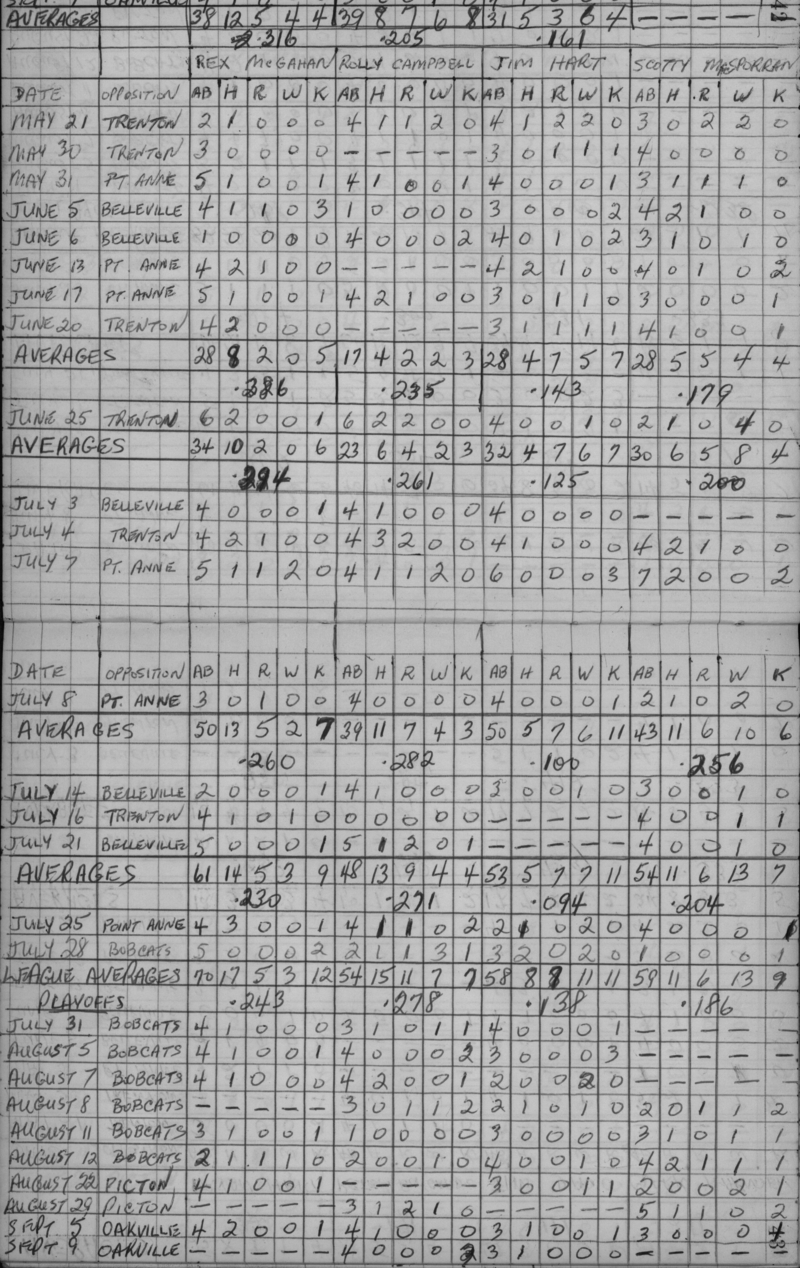 AVERAGES 38 12 5 4 4 39 8 7 6 8 31 5 3 6 4 — — — — —
.316 .205 .161
REX McGAHAN ROLLY CAMPBELL JIM HART SCOTTY McSPORRAN
DATE OPPOSITION AB H R W K AB H R W K AB H R W K AB H R W K
MAY 21 TRENTON 2 1 0 0 0 4 1 1 2 0 4 1 2 2 0 3 0 2 2 0
MAY 30 TRENTON 3 0 0 0 0 — — — — — 3 0 1 1 1 4 0 0 0 0
MAY 31 PT. ANNE 5 1 0 0 1 4 1 0 0 1 4 0 0 0 1 3 1 1 1 0
JUNE 5 BELLEVILLE 4 1 1 0 3 1 0 0 0 0 3 0 0 0 2 4 2 1 0 0
JUNE 6 BELLEVILLE 1 0 0 0 0 4 0 0 0 2 4 0 1 0 2 3 1 0 1 0
JUNE 13 PT. ANNE 4 2 1 0 0 — — — — — 4 2 1 0 0 4 0 1 0 2
JUNE 17 PT. ANNE 5 1 0 0 1 4 2 1 0 0 3 0 1 1 0 3 0 0 0 1
JUNE 20 TRENTON 4 2 0 0 0 — — — — — 3 1 1 1 1 4 1 0 0 1
AVERAGES 28 8 2 0 5 17 4 2 2 3 28 4 7 5 7 28 5 5 4 4
.286 .235 .143 .179
JUNE 25 TRENTON 6 2 0 0 1 6 2 2 0 0 4 0 0 1 0 2 1 0 4 0
AVERAGES 34 10 2 0 6 23 6 4 2 3 32 4 7 6 7 30 6 5 8 4
.294 .261 .125 .200
JULY 3 BELLEVILLE 4 0 0 0 1 4 1 0 0 0 4 0 0 0 0 — — — — —
JULY 4 TRENTON 4 2 1 0 0 4 3 2 0 0 4 1 0 0 0 4 2 1 0 0
JULY 7 PT. ANNE 5 1 1 2 0 4 1 1 2 0 6 0 0 0 3 7 2 0 0 2
DATE OPPOSITION AB H R W K AB H R W K AB H R W K AB H R W K
JULY 8 PT. ANNE 3 0 1 0 0 4 0 0 0 0 4 0 0 0 1 2 1 0 2 0
AVERAGES 50 13 5 2 7 39 11 7 4 3 50 5 7 6 11 43 11 6 10 6
.260 .282 .100 .256
JULY 14 BELLEVILLE 2 0 0 0 1 4 1 0 0 0 3 0 0 1 0 3 0 0 1 0
JULY 16 TRENTON 4 1 0 1 0 0 0 0 0 0 — — — — — 4 0 0 1 1
JULY 21 BELLEVILLE 5 0 0 0 1 5 1 2 0 1 — — — — — 4 0 0 1 0
AVERAGES 61 14 5 3 9 48 13 9 4 4 53 5 7 7 11 54 11 6 13 7
.230 .271 .094 .204
JULY 25 POINT ANNE 4 3 0 0 1 4 1 1 0 2 2 1 0 2 0 4 0 0 0 1
JULY 28 BOBCATS 5 0 0 0 2 2 1 1 3 1 3 2 0 2 0 1 0 0 0 1
LEAGUE AVERAGES 70 17 5 3 12 54 15 11 7 7 58 8 8 11 11 59 11 6 13 9
PLAYOFFS .243 .278 .138 .186
JULY 31 BOBCATS 4 1 0 0 0 3 1 0 1 1 4 0 0 0 1 — — — — —
AUGUST 5 BOBCATS 4 1 0 0 1 4 0 0 0 2 3 0 0 0 3 — — — — —
AUGUST 7 BOBCATS 4 1 0 0 0 4 2 0 0 1 2 0 0 2 0 — — — — —
AUGUST 8 BOBCATS — — — — — 3 0 1 1 2 2 1 0 1 0 2 0 1 1 2
AUGUST 11 BOBCATS 3 1 0 0 1 1 0 0 0 0 3 0 0 0 0 3 1 0 1 1
AUGUST 12 BOBCATS 2 1 1 1 0 2 0 0 1 0 4 0 0 1 0 4 2 1 1 1
AUGUST 22 PICTON 4 1 0 0 1 — — — — — 3 0 0 1 1 2 0 0 2 1
AUGUST 29 PICTON — — — — — 3 1 2 1 0 — — — — — 5 1 1 0 2
SEPT 5 OAKVILLE 4 2 0 0 1 4 1 0 0 0 3 1 0 0 1 3 0 0 0
SEPT 9 OAKVILLE — — — — — 4 0 0 0 2 3 1 0 0 0 — — — —